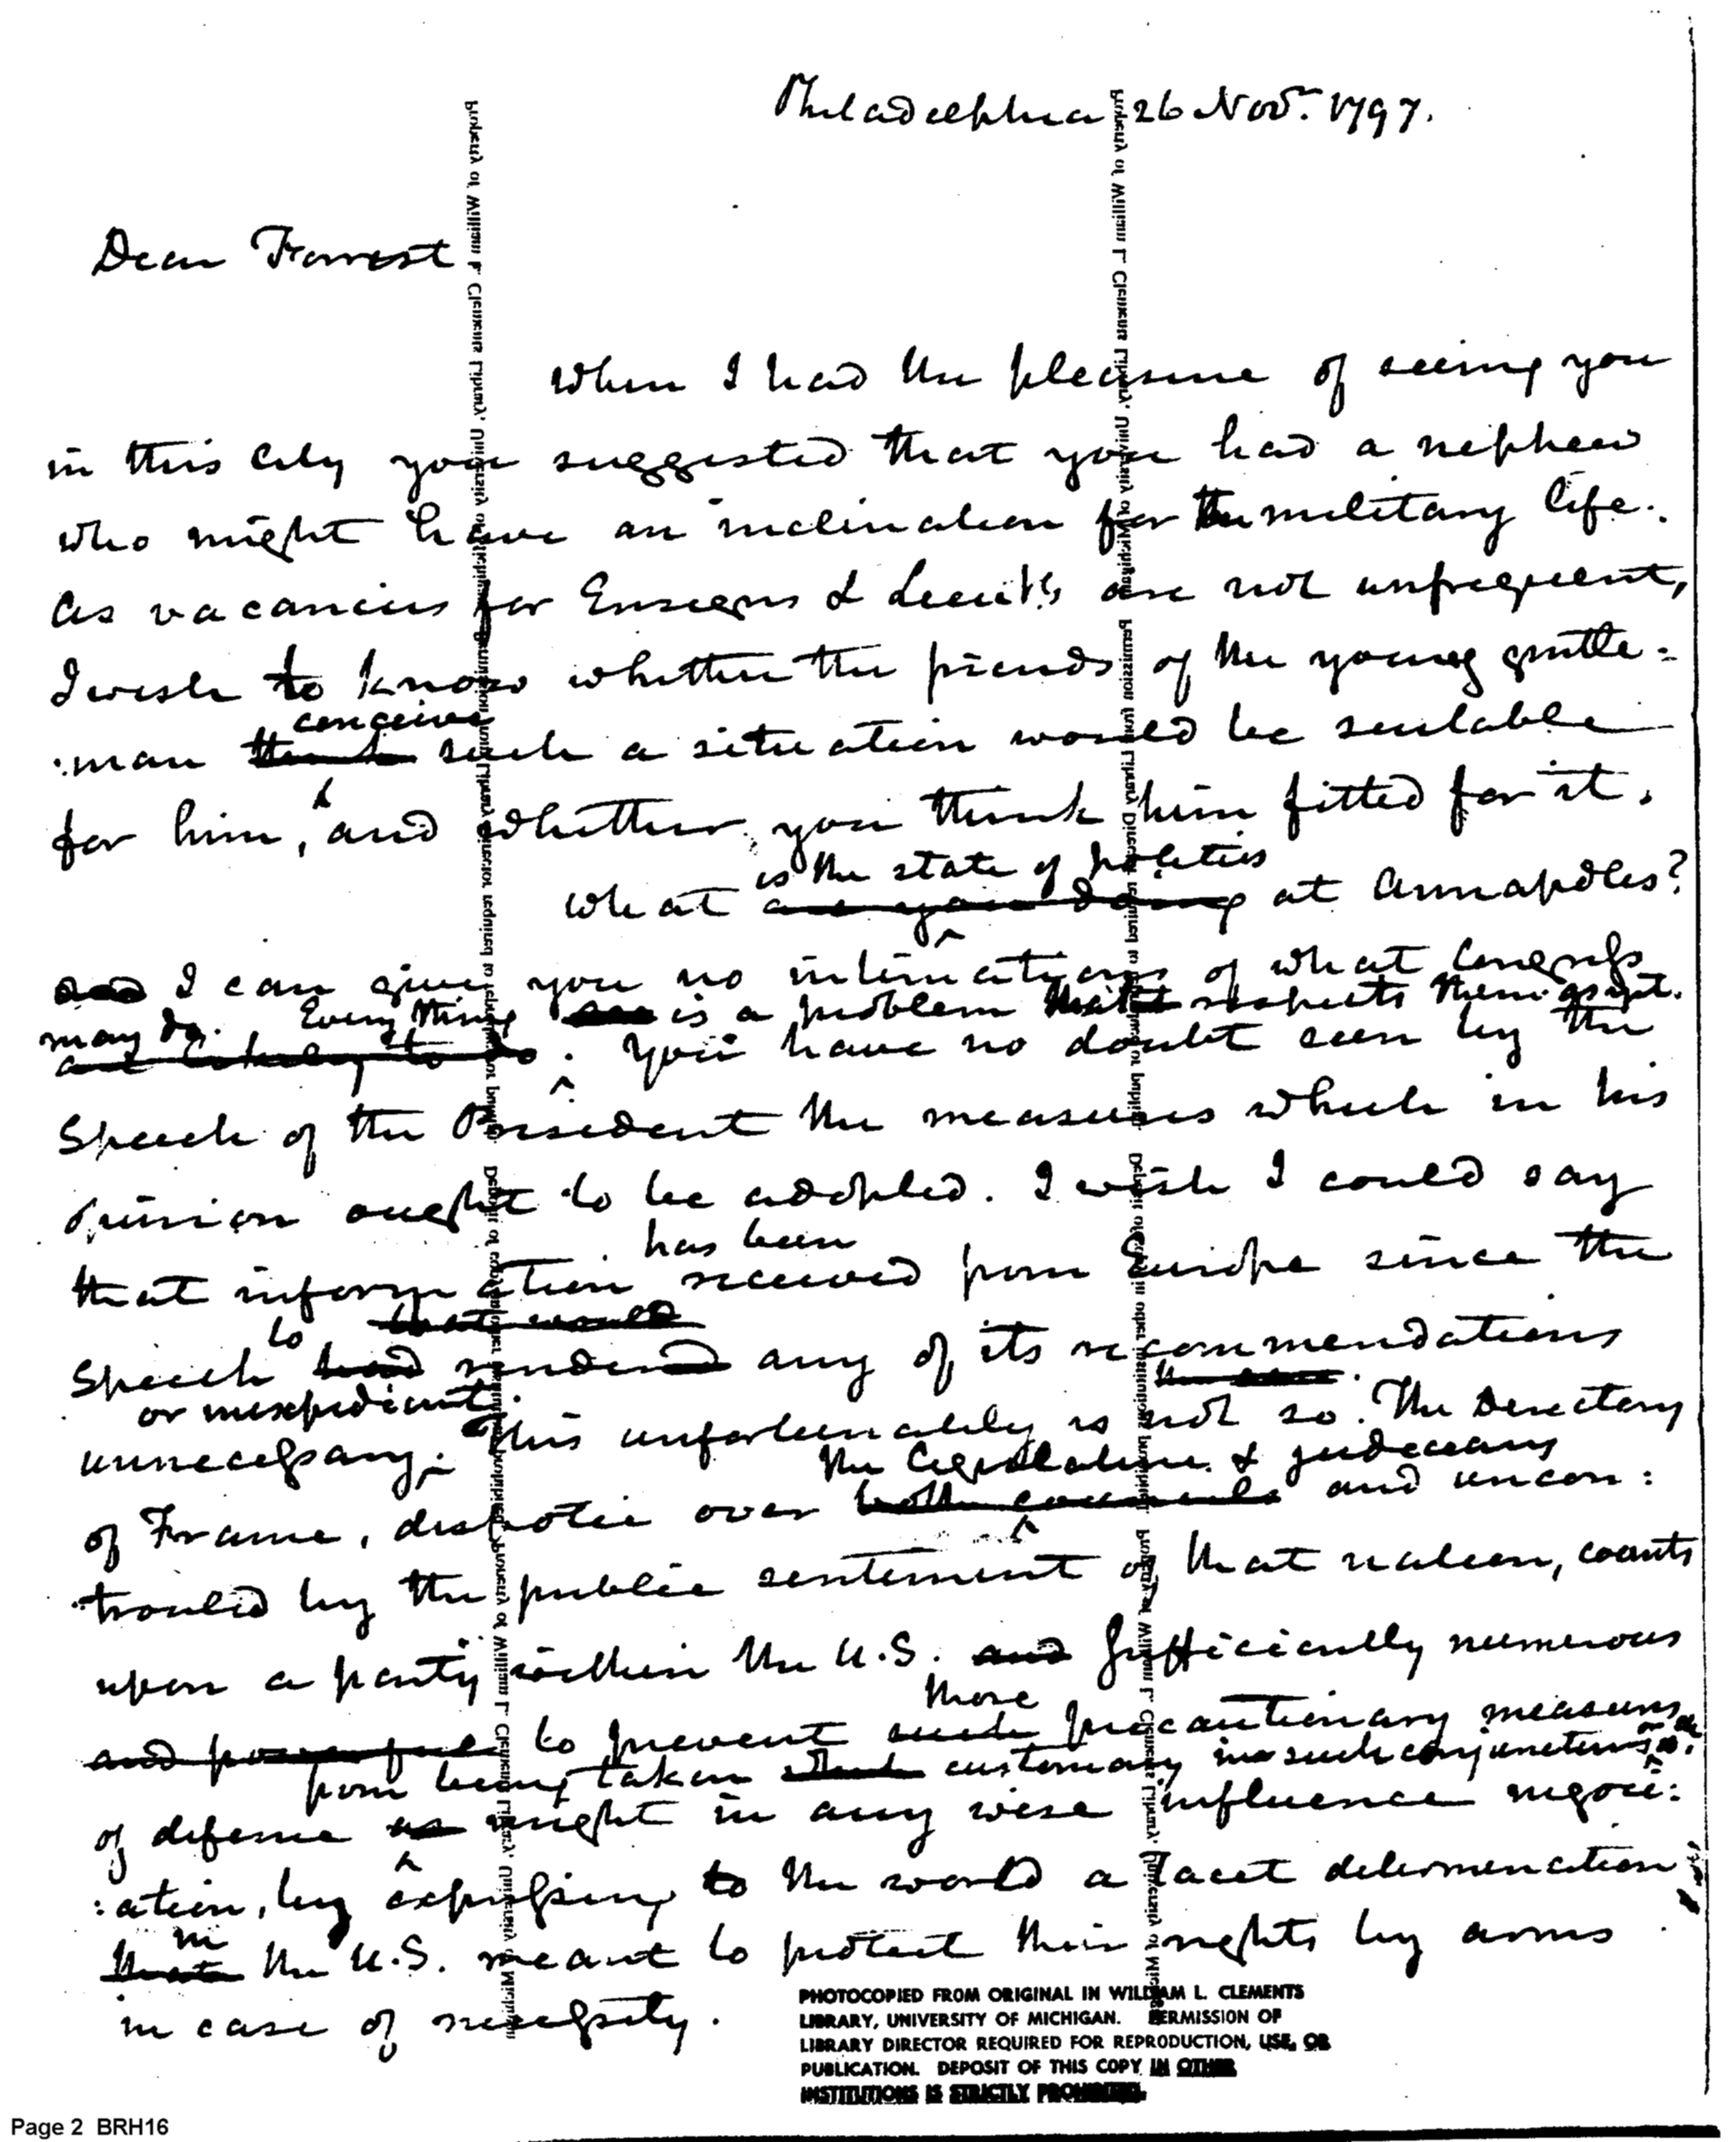 Philadelphia 26 Novr. 1797.
Dear Forrest
When I had the pleasure of seeing you
in this City you suggested that you had a nephew
who might have an inclination for the military life.
As vacancies for Ensigns & Lieuts are not unfrequent,
I wish to know whether the friends of the young gentle=
conceive
:man think such a situation would be suitable
for him, and whether you think him fitted for it.
is the state of politics
What are you doing at Annapolis?
and I can give you no intimations of what Congress
may do. Every thing is a problem that respects them as yet.
are likely to do. You have no doubt seen by the
Speech of the President the measures which in his
opinion ought to be adopted. I wish I could say
has been
that information received from Europe since the
to that would
Speech had rendered any of its recommendations
or inexpedient
unnecessary. This unfortunately is not so. The Directory
the Legislature & judiciary
of France, despotic over both councils and uncon:
trouled by the public sentiment of that nation, counts
upon a party within the U.S. and sufficiently numerous
those
and powerful to prevent such precautionary measures
from being taken customary in such conjunctures or as
of defence as might in any wise influence negoci:
:ation, by expressing to the world a tacit determination
in
that the U.S. meant to protect their rights by arms
in case of necessity.
PHOTOCOPIED FROM ORIGINAL IN WILLIAM L. CLEMENTS
LIBRARY, UNIVERSITY OF MICHIGAN. PERMISSION OF
LIBRARY DIRECTOR REQUIRED FOR REPRODUCTION, USE, OR
PUBLICATION. DEPOSIT OF THIS COPY IN OTHER
INSTITUTIONS IS STRICTLY PROHIBITED.
Page 2 BRH16